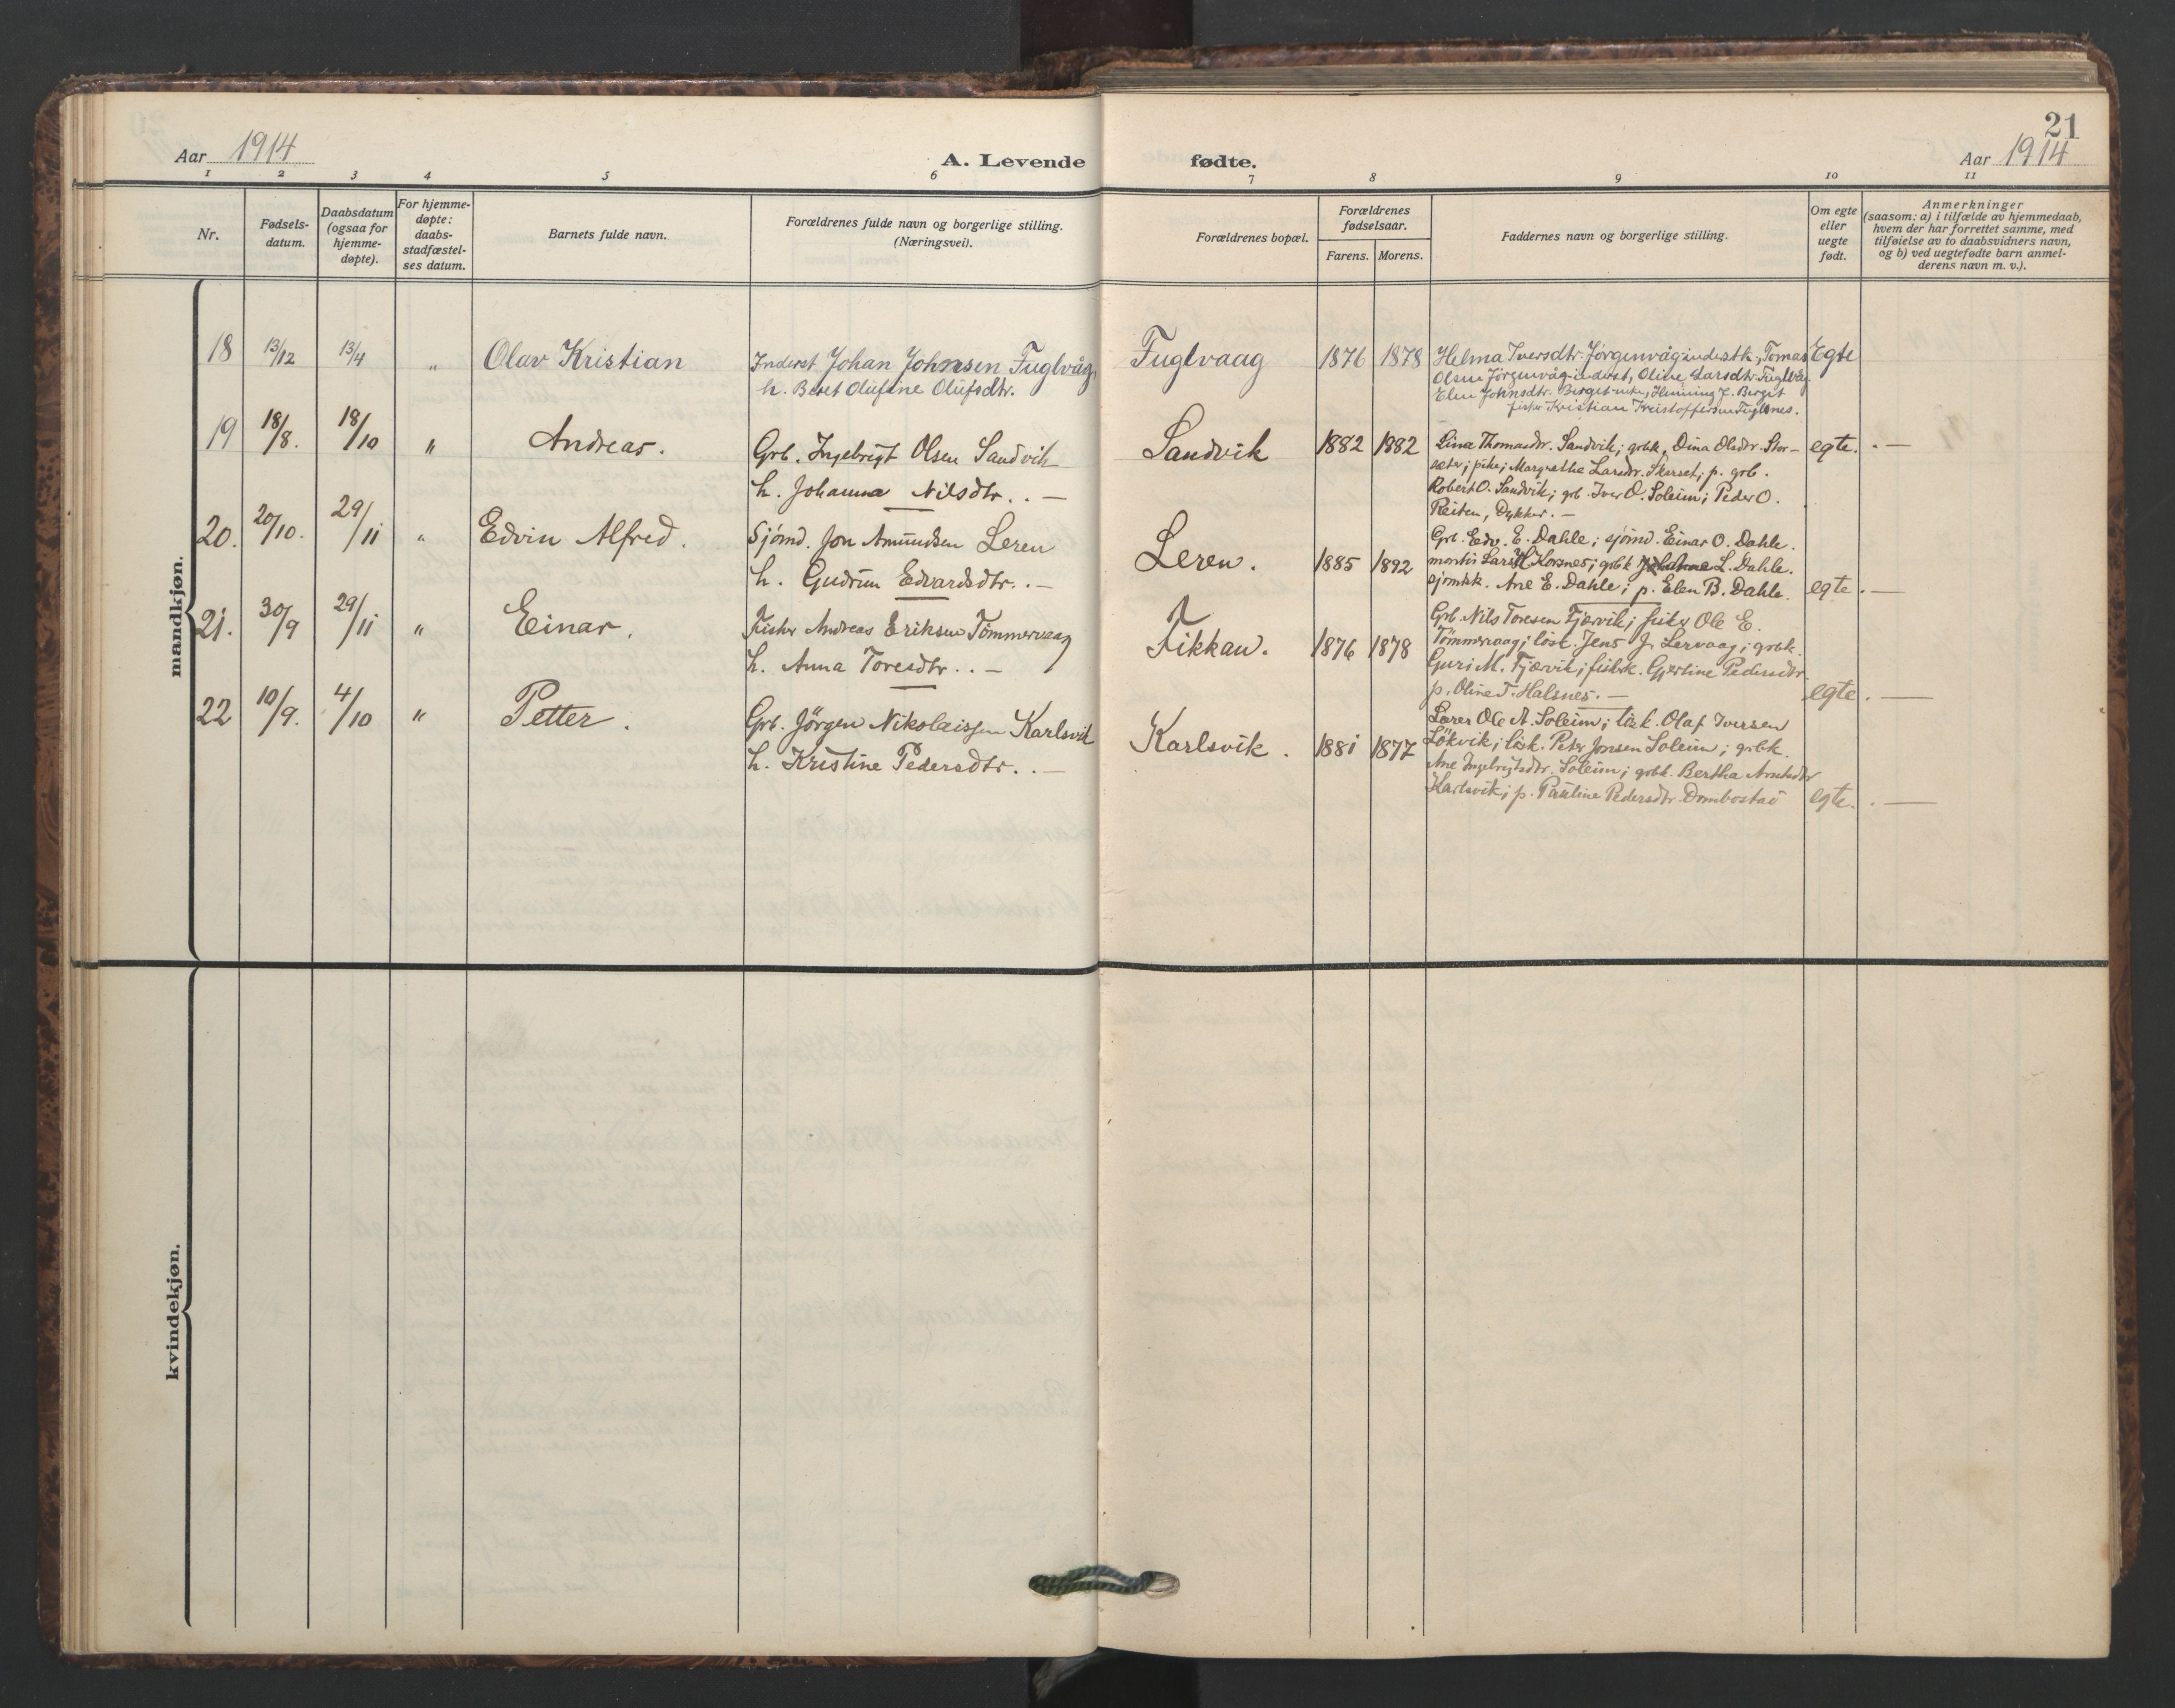 21
Aar 1914
A. Levende fødte.
Aar 1914
1 2 3 4 5 6 7 8 9 10 11
Nr.
Fødsels-
datum.
Daabsdatum
(ogsaa for
hjemme-
døpte).
For hjemme-
døpte:
daabs-
stadfæstel-
ses datum.
Barnets fulde navn.
Forældrenes fulde navn og borgerlige stilling.
(Næringsvei).
Forældrenes bopæl.
Forældrenes
fødselsaar.
Farens. Morens.
Faddernes navn og borgerlige stilling.
Om egte
eller
uegte
født.
Anmerkninger
(saasom: a) i tilfælde av hjemmedaab,
hvem der har forrettet samme, med
tilføielse av to daabsvidners navn,
og b) ved uegtefødte barn anmel-
derens navn m. v.).
mandkjøn.
18 13/12 13/4 " Olav Kristian
Inderst Johan Johnsen Fuglvåg,
h. Beret Olufine Olufsdtr.
Fuglvaag 1876 1878
Helma Iversdtr. Jørgenvåg inderstk, Tomas
Olsen Jørgenvåg inderst, Oline Larsdtr. Fuglvåg
Elen Johnsdtr. Berget, Henning J. Berget
fisker Kristian Kristoffersen Fuglsnes.
Egte
19 18/8. 18/10 " Andreas.
Grb. Ingebrigt Olsen Sandvik
h. Johanna Nilsdtr. . —
Sandvik 1882 1882
Lina Thomasdr. Sandvik; grbk, Dina Olsdr. Stor-
sæter; pike; Margrethe Larsdr. Skarset; p. grb.
Robert O. Sandvik; grb. Iver O. Soleim; Peder O.
Reiten, Dykker. —
egte. . —
20. 20/10. 29/11 " Edvin Alfred.
Sjömd. Jon Amundsen Leren
h. Gudrun Edvardsdtr. . —
Leren. 1885 1892
Grb. Edv. E. Dahle; sjömd. Einar O. Dahle.
Lars H. Korsnes; grbk L. Dahle.
sjömkk. Ane E. Dahle; p. Elen B. Dahle.
egte. —
21. 30/9 29/11 " Einar.
Fisker Andreas Eriksen Tömmervaag
h. Anna Toresdtr. . —
Fikkan. 1876 1878
Grb. Nils Toresen Fjærvik; fisker Ole E.
Tömmervaag; lösk. Jens J. Lervaag; grbk.
Guri M. Fjærvik; fiskk. Gjertine Pedersdtr.
p. Oline T. Halsnes. —
egte. —
22 10/9. 4/10 " Petter.
Grb. Jörgen Nikolaissen Karlsvik
h. Kristine Pedersdtr. . —
Karlsvik. 1881 1877
Lærer Ole A. Soleim; lösk. Olaf Iversen
Lökvik; lösk. Peter Jonsen Soleim; grbk.
Ane Ingebrigtsdtr. Soleim; grbk. Bertha Arntsdtr
Karlsvik; p. Pauline Pedersdtr. Drombostad
egte. . —
kvindekjøn.